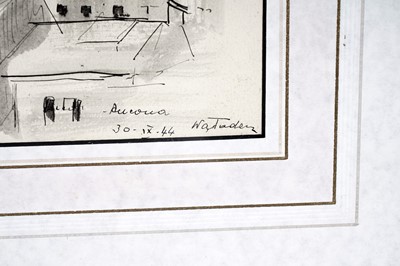 Ancona
30-IX-44